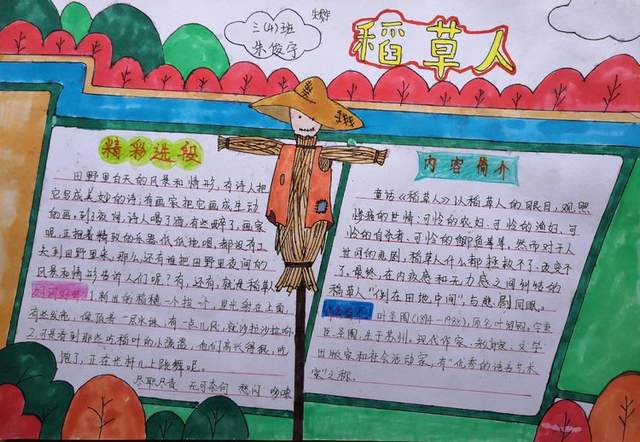 三(4)班
朱俊宇
稻草人
精彩选段
田野里白天的风景和情形,有诗人把
它写成美妙的诗,有画家把它画成生动
的画。到了夜间,诗人喝了酒,有些醉了;画家
呢,正抱着精致的乐器低低地唱:都没有工
夫到田野里来。那么,还有谁把田野里夜间的
风景和情形告诉人们呢?有,还有,就是稻草人
好词好句
1.新出的稻穗一个挨一个,星光射在上面,
有些发亮,像顶着一层水珠,有一点儿风,就沙拉沙拉的
2.可是看到那些吃稻叶的小
饱了,正在光秆儿上跳舞呢。
尽职尽责 无可奈何 愁闷
内容简介
童话《稻草人》以稻草人的眼目,观照
可怜的农妇、可怜的渔妇、可
怜的自杀者、可怜的鲫鱼
世间的悲剧,稻草人什么都拯救不了,改变不
了。最终,在内疚感和无力感之间纠结的
稻草人“倒在田地中间”,与悲剧同眠。
叶圣陶(1894-1988),原名叶绍钧,字秉
臣、圣陶,生于苏州,现代作家、教育家、文学
出版家和社会活动家,有“优秀的语言艺术
家”之称。